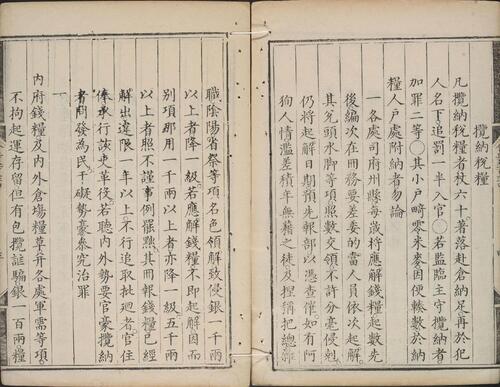 攬納稅糧
凡攬納稅糧者杖六十著落赴倉納足再於犯
人名下追罰一半入官○若監臨主守攬納者
加罪二等○其小戶畸零米麥因便輳數於納
糧人戶處附納者勿論
一各處司府州縣每歲將應解錢糧起數先
後編次在冊務要差委的當人員依次起解
其兌頭水脚等項照數交領不許分毫侵剋
仍將起解日期預先報部以憑查催如有阿
狗人情濫差積年無藉之徒及捏稍把總等
職陰陽省祭等項名色領解致侵銀一千兩
以上者降一級若應解錢糧不即起解因而
別項那用一千兩以上者亦降一級五千兩
以上者照不謹事例罷黜其冊報錢糧已經
解出違限一年以上不行追取批迴者官住
俸承行該吏革役若聽內外勢要官豪攬納
者問發為民干礙勢豪參究治罪
一
內府錢糧及內外倉塲糧草并各處軍需等項
不拘起運存留但有包攬誆騙銀一百兩糧